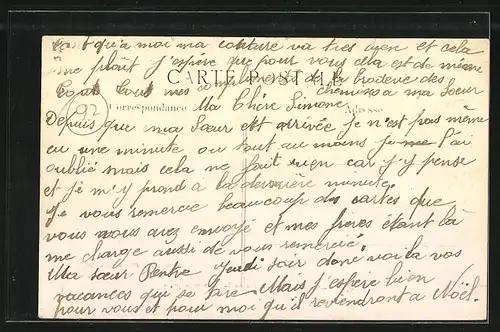 Quant qu'à moi ma couture va très bien et cela
me plaît j'espère que pour vous cela est de même
CARTE POSTALE
Tous mes compliments de la broderie des
chemises à ma sœur
(92)
Correspondance Ma Chère Simone Adresse
Depuis que ma sœur est arrivée je n'est pas même
eu une minute ou tout au moins je me l'ai
oublié mais cela ne fait rien car j'y pense
et je m'y prend à la dernière minute.
Je vous remercie beaucoup des cartes que
vous nous avez envoyé et mes frères étant là
me charge aussi de vous remercié.
Ma sœur Rentre jeudi soir donc voilà vos
vacances qui se tire Mais j'espère bien
pour vous et pour moi qu'il reviendront à Noël.